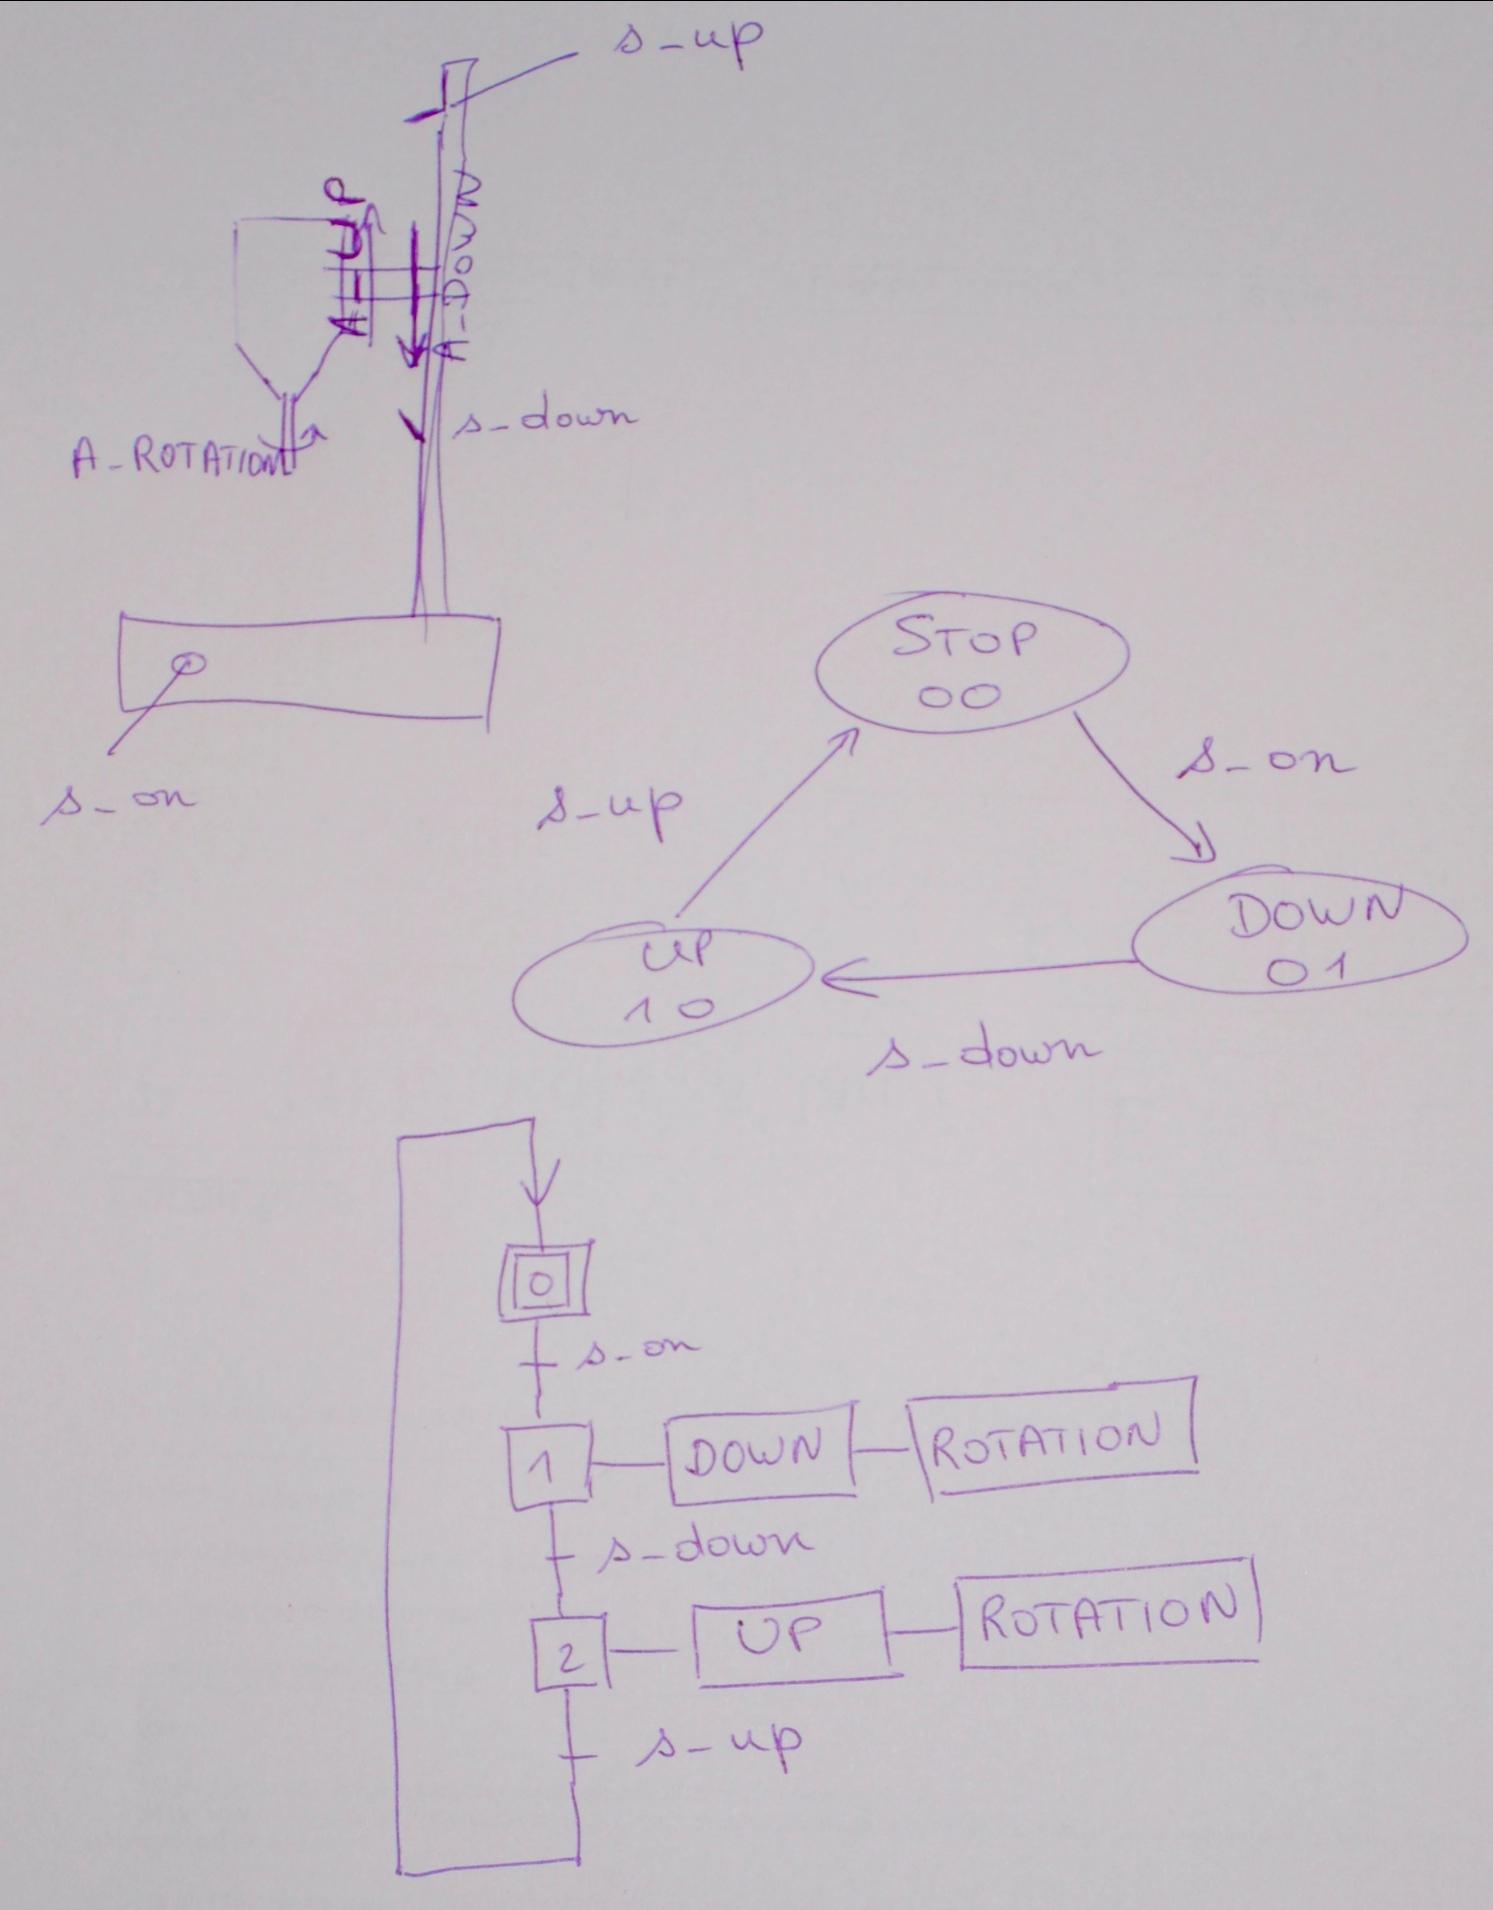 s-up
A-UP
A-DOWN
s-down
A-ROTATION
s-on
STOP
00
s-on
s-up
DOWN
01
UP
10
s-down
0
s-on
1
DOWN
ROTATION
s-down
2
UP
ROTATION
s-up